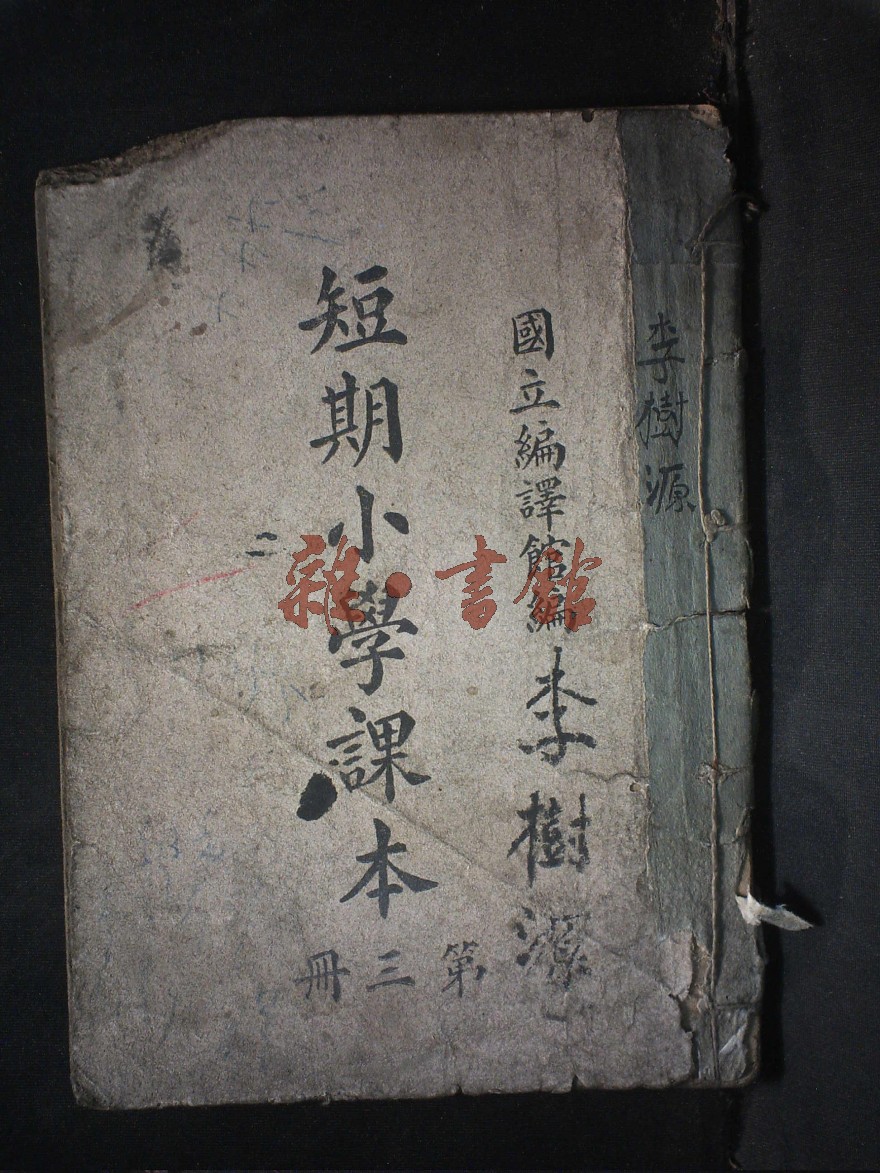 李樹源
國立編譯館編
李樹源
短期小學課本
第三冊
二
雜·書館